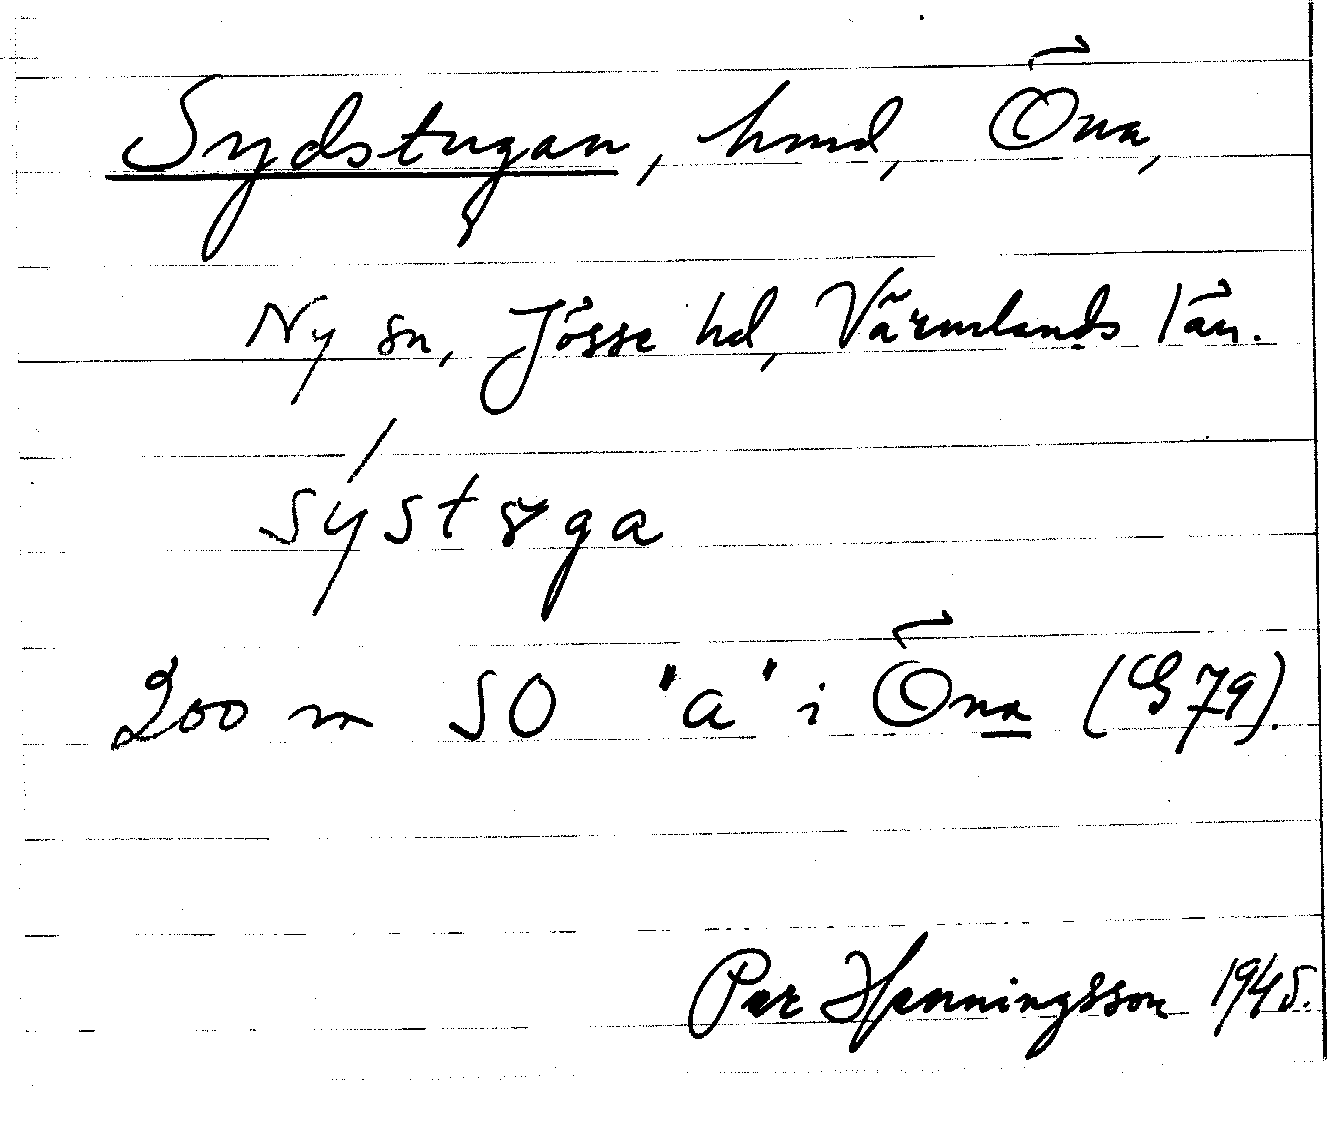 Sydstugan, hmd, Öna,
Ny sn, Jösse hd, Värmlands län.
200 m SO "a" i Öna (G79).
Per Henningsson 1945.